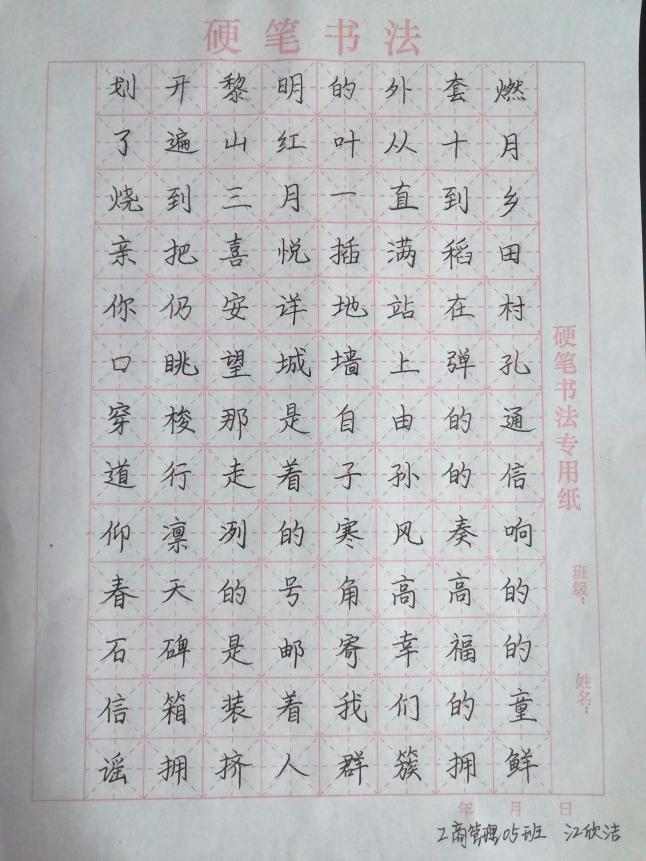 硬笔书法
划开黎明的外套燃
了遍山红叶从十月
烧到三月一直到乡
亲把喜悦插满稻田
你仍安详地站在村
口眺望城墙上弹孔
穿梭那是自由的通
道行走着子孙的信
仰凛冽的寒风奏响
春天的号角高高的
石碑是邮寄幸福的
信箱装着我们的童
谣拥挤人群簇拥鲜
硬笔书法专用纸
班级：
姓名：
年 月 日
工商管理05班 江欣洁